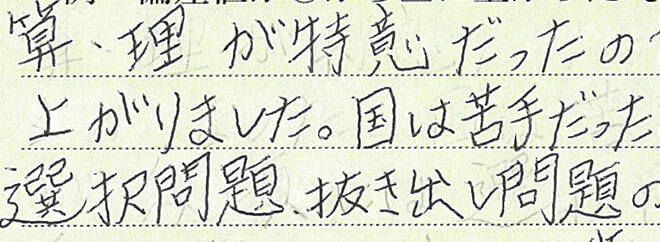 算、理が特意だったの
上がりました。国は苦手だった
選択問題、抜き出し問題の